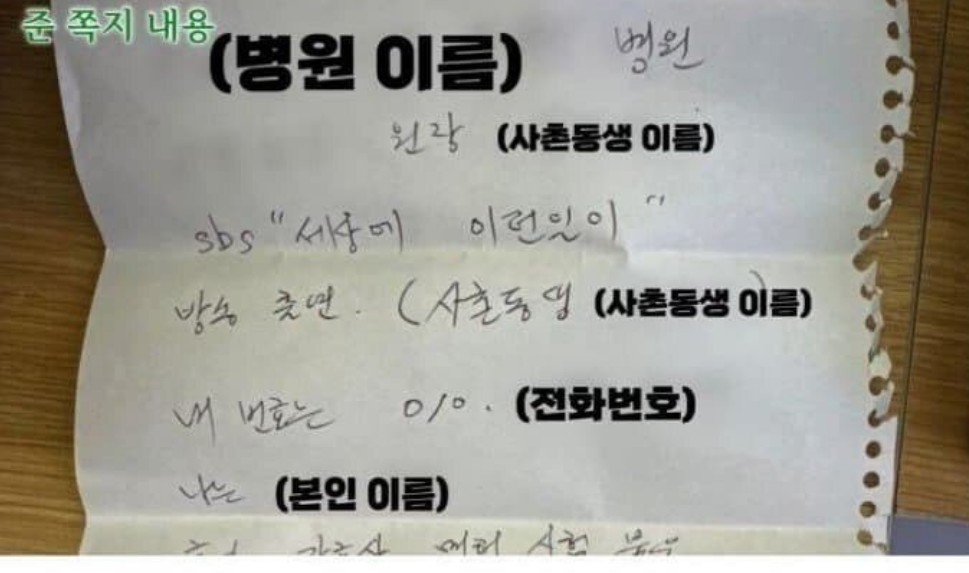 준 쪽지 내용
(병원 이름) 병원
원장 (사촌동생 이름)
sbs "세상에 이런일이"
방송 출연. (사촌동생 (사촌동생 이름))
내 번호는 010. (전화번호)
나는 (본인 이름)